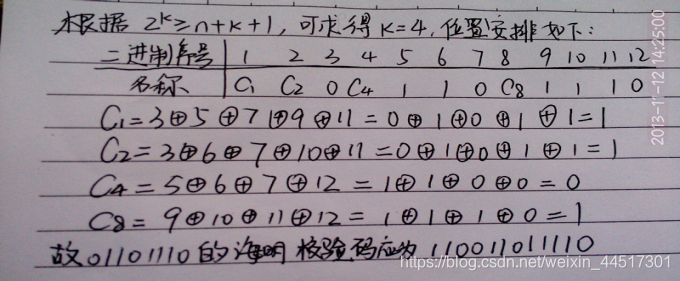 根据 2^k≥n+k+1, 可求得 k=4, 位置安排如下:
二进制序号 1 2 3 4 5 6 7 8 9 10 11 12
名称 C1 C2 0 C4 1 1 0 C8 1 1 1 0
C1=3⊕5⊕7⊕9⊕11=0⊕1⊕0⊕1⊕1=1
C2=3⊕6⊕7⊕10⊕11=0⊕1⊕0⊕1⊕1=1
C4=5⊕6⊕7⊕12=1⊕1⊕0⊕0=0
C8=9⊕10⊕11⊕12=1⊕1⊕1⊕0=1
故01101110的海明校验码应为110011011110
2013-11-12 14:25:00
https://blog.csdn.net/weixin_44517301